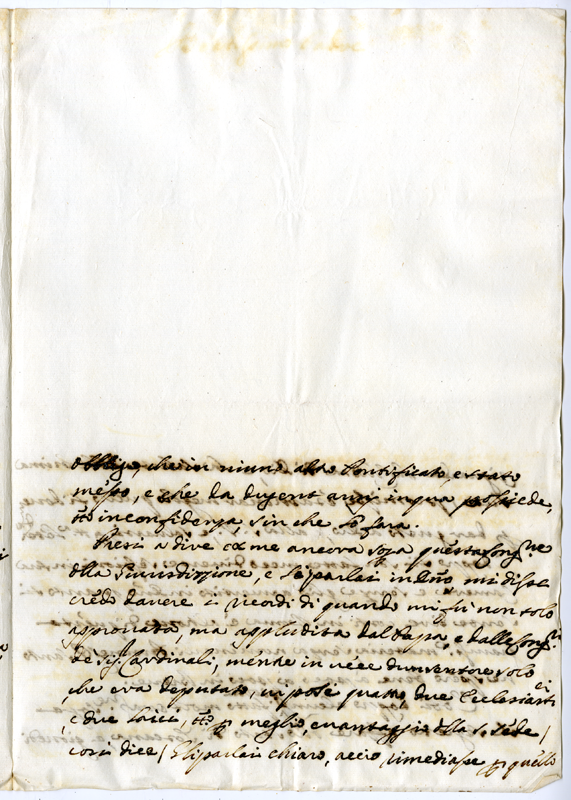 obbligo, che in niuno altro Pontificato e stato
messo, e che da dugent anni in qua possiede,
tto in confidenza, sin che lo fara.
Presi a dire come ancora sopa questa Congne
dlla Giurisdizzione, e parlai in mi disse
credo davere i ricordi di quando mi fu non solo
approvata, ma appludita dal Papa, e dalle Congni
de Sigi Cardinali, mentre in vece dun ventore solo
che era deputato, vi pose quattro, due Eclesiasti
e due laici, tto p meglio, e vantaggio dlla S. Sede
cosi dice / Gli parlai chiaro, accio rimediasse p quello